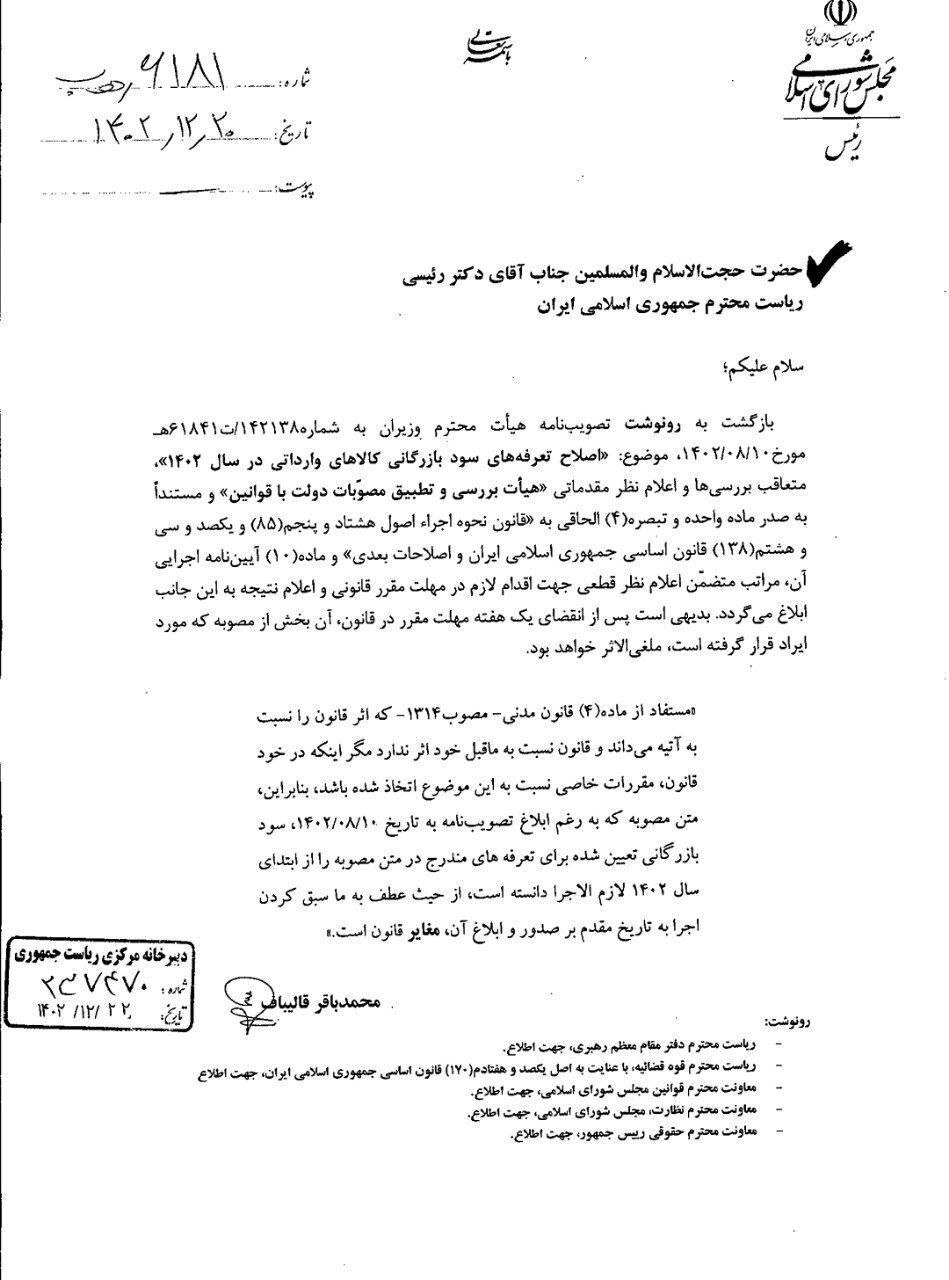 باسمه تعالی
جمهوری اسلامی ایران
مجلس شورای اسلامی
رئیس
شماره: ۶۱۸۱
تاریخ: ۱۴۰۲٫۱۲٫۲۰
پیوست:
حضرت حجت‌الاسلام والمسلمین جناب آقای دکتر رئیسی
ریاست محترم جمهوری اسلامی ایران
سلام علیکم؛
بازگشت به رونوشت تصویب‌نامه هیأت محترم وزیران به شماره۱۴۲۱۳۸/ت۶۱۸۴۱هـ
مورخ۱۴۰۲/۰۸/۱۰، موضوع: «اصلاح تعرفه‌های سود بازرگانی کالاهای وارداتی در سال ۱۴۰۲»،
متعاقب بررسی‌ها و اعلام نظر مقدماتی «هیأت بررسی و تطبیق مصوّبات دولت با قوانین» و مستنداً
به صدر ماده واحده و تبصره(۴) الحاقی به «قانون نحوه اجراء اصول هشتاد و پنجم(۸۵) و یکصد و سی
و هشتم(۱۳۸) قانون اساسی جمهوری اسلامی ایران و اصلاحات بعدی» و ماده(۱۰) آیین‌نامه اجرایی
آن، مراتب متضمّن اعلام نظر قطعی جهت اقدام لازم در مهلت مقرر قانونی و اعلام نتیجه به این جانب
ابلاغ می‌گردد. بدیهی است پس از انقضای یک هفته مهلت مقرر در قانون، آن بخش از مصوبه که مورد
ایراد قرار گرفته است، ملغی‌الاثر خواهد بود.
«مستفاد از ماده(۴) قانون مدنی- مصوب۱۳۱۴- که اثر قانون را نسبت
به آتیه می‌داند و قانون نسبت به ماقبل خود اثر ندارد مگر اینکه در خود
قانون، مقررات خاصی نسبت به این موضوع اتخاذ شده باشد، بنابراین،
متن مصوبه که به رغم ابلاغ تصویب‌نامه به تاریخ ۱۴۰۲/۰۸/۱۰، سود
بازرگانی تعیین شده برای تعرفه های مندرج در متن مصوبه را از ابتدای
سال ۱۴۰۲ لازم الاجرا دانسته است، از حیث عطف به ما سبق کردن
اجرا به تاریخ مقدم بر صدور و ابلاغ آن، مغایر قانون است.»
محمدباقر قالیباف
دبیرخانه مرکزی ریاست جمهوری
شماره:
تاریخ: ۱۴۰۲/۱۲/۲۲
رونوشت:
- ریاست محترم دفتر مقام معظم رهبری، جهت اطلاع.
- ریاست محترم قوه قضائیه، با عنایت به اصل یکصد و هفتادم(۱۷۰) قانون اساسی جمهوری اسلامی ایران، جهت اطلاع
- معاونت محترم قوانین مجلس شورای اسلامی، جهت اطلاع.
- معاونت محترم نظارت، مجلس شورای اسلامی، جهت اطلاع.
- معاونت محترم حقوقی رییس جمهور، جهت اطلاع.